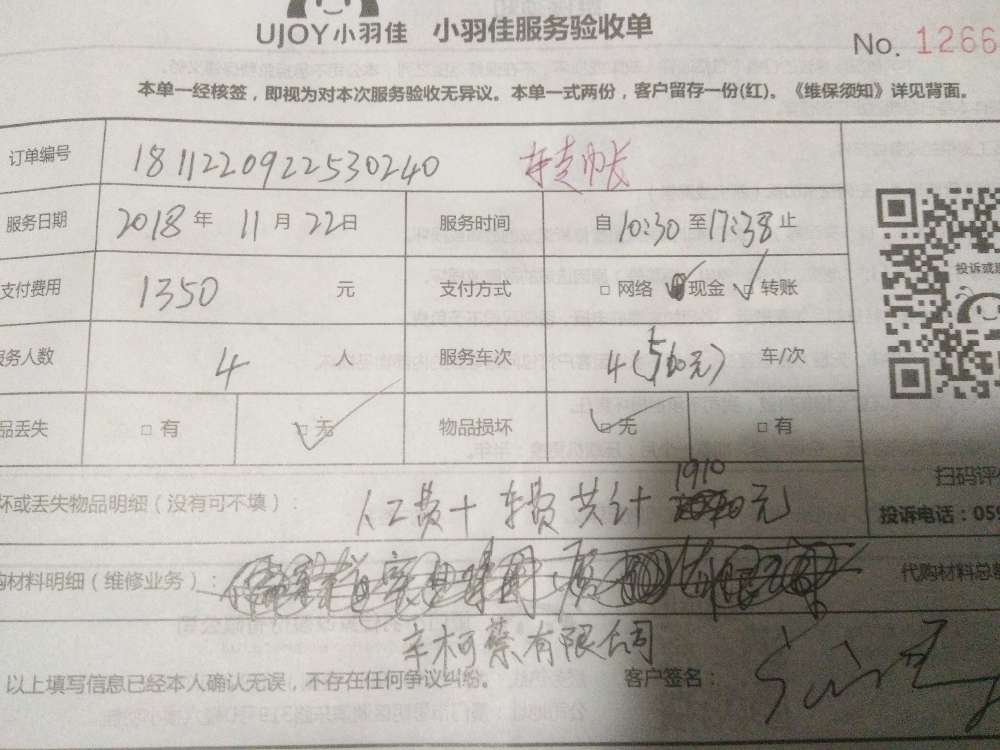 UJOY小羽佳 小羽佳服务验收单
No. 1266
本单一经核签，即视为对本次服务验收无异议。本单一式两份，客户留存一份(红)。《维保须知》详见背面。
订单编号 1811220922530240
服务日期 2018 年 11 月 22 日 服务时间 自 10:30 至 17:38 止
支付费用 1350 元 支付方式 □ 网络 现金 □ 转账
投诉或
务人数 4 人 服务车次 4 车/次
品丢失 □ 有 □ 无 物品损坏 □ 无 □ 有
坏或丢失物品明细（没有可不填）： 人工费+车费共计 1910 元
扫码评
投诉电话：059
购材料明细（维修业务）： 代购材料总
有限公司
以上填写信息已经本人确认无误，不存在任何争议纠纷。 客户签名：